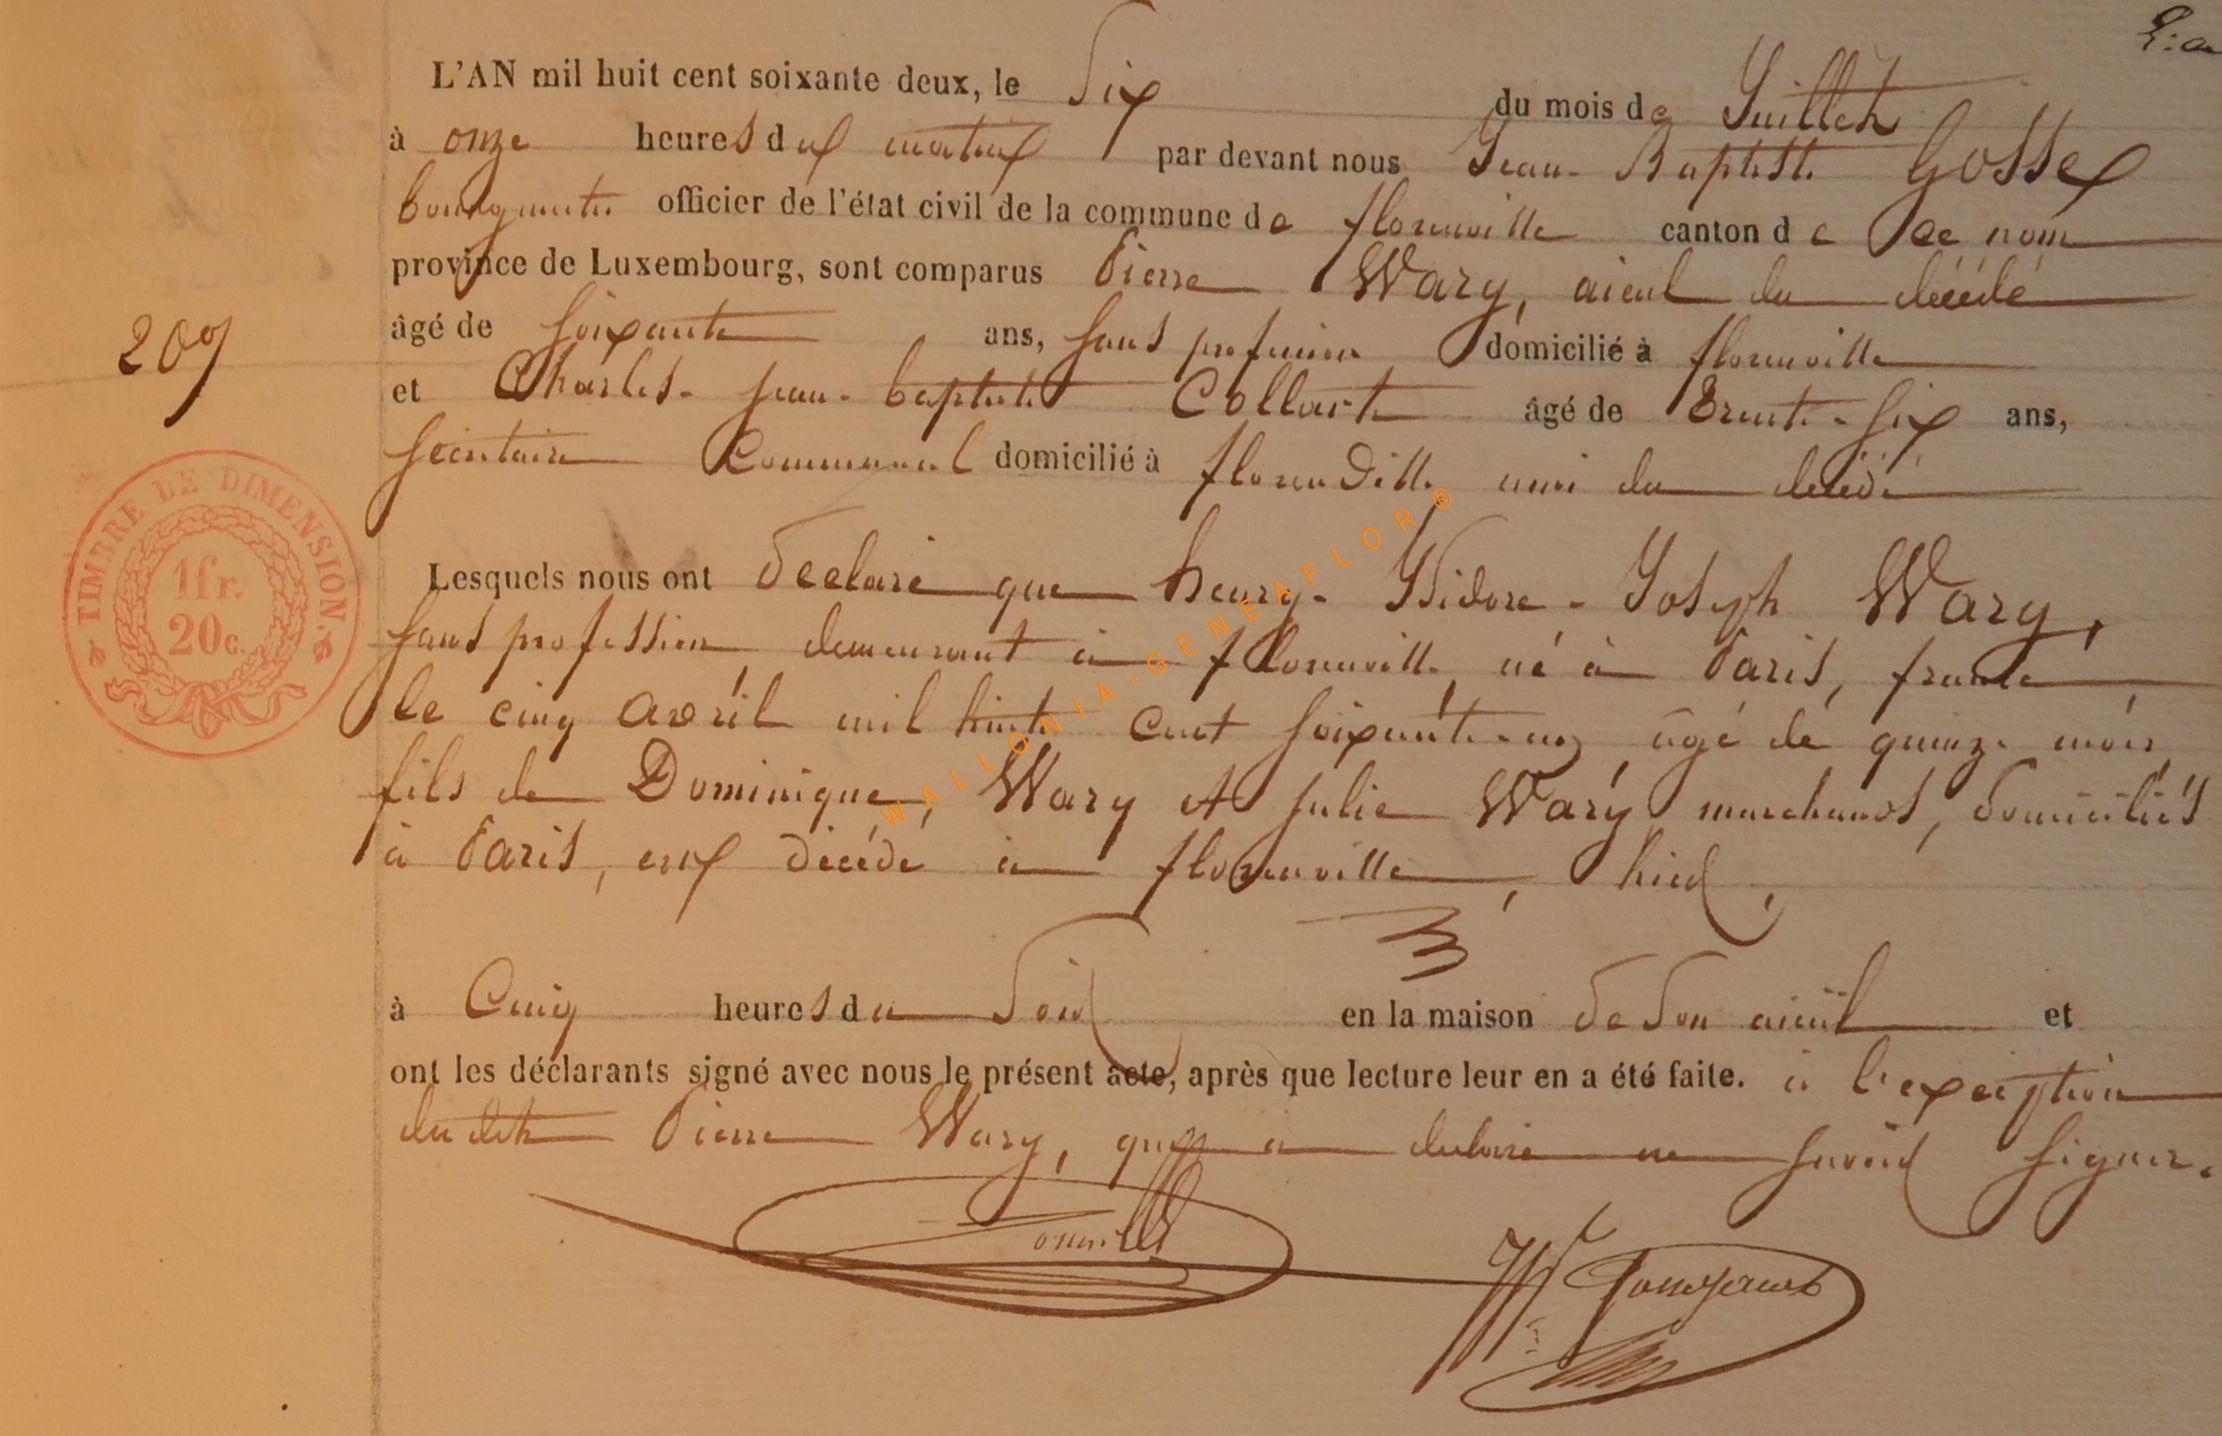 L'AN mil huit cent soixante deux, le Six du mois de Juillet
à onze heures du matin par devant nous Jean-Baptiste Gosse
bourgmestre officier de l'état civil de la commune de florenville canton de ce nom
province de Luxembourg, sont comparus Pierre Wary, aieul du décédé
âgé de soixante ans, sans profession domicilié à florenville
et Charles-jean-baptiste Collart âgé de Trente-six ans,
secrétaire communal domicilié à florenville ami du décédé
209
TIMBRE DE DIMENSION.
1fr.
20c.
Lesquels nous ont déclaré que henry-Isidore-Joseph Wary,
sans profession demeurant à florenville, né à Paris, france
le cinq avril mil huit cent soixante-un, âgé de quinze mois,
fils de Dominique Wary et julie Wary marchands, domiciliés
à Paris, est décédé à florenville, hier,
à Cinq heures du Soir en la maison de son aieul et
ont les déclarants signé avec nous le présent acte, après que lecture leur en a été faite. à l'exception
dudit Pierre Wary, qui a declaré ne savoir signer.
WALLONIA-GENEAFLOR®